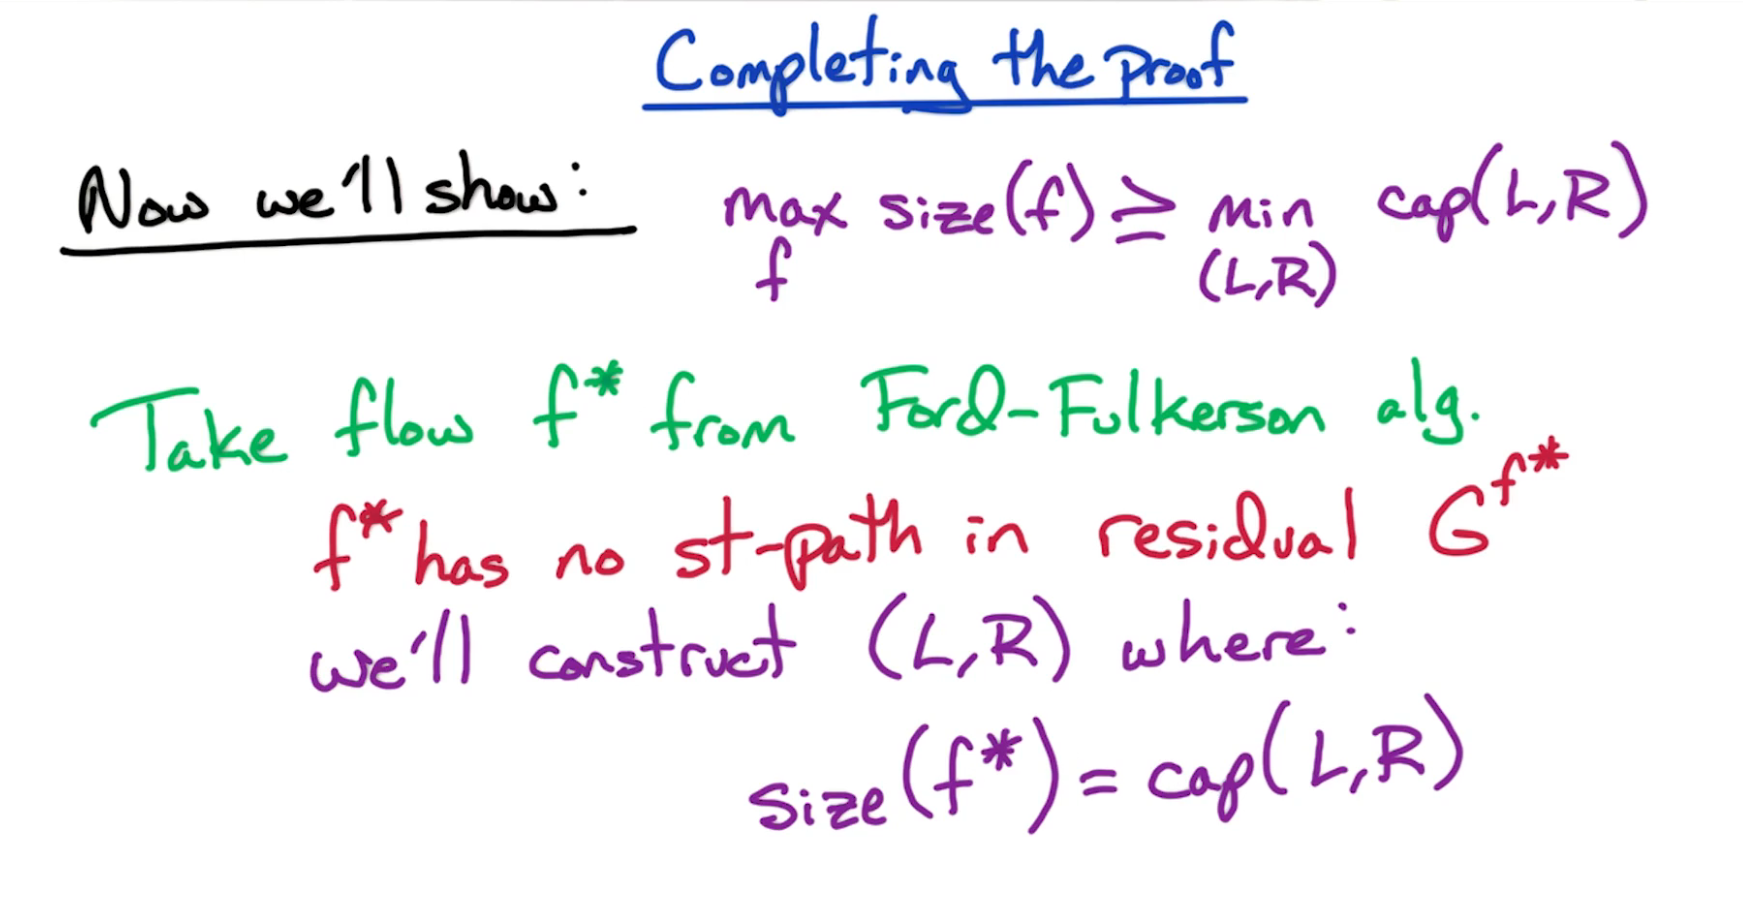 Completing the proof
Now we'll show: max size(f) ≥ min cap(L,R)
f (L,R)
Take flow f* from Ford-Fulkerson alg.
f* has no st-path in residual G^f*
we'll construct (L,R) where:
size(f*) = cap(L,R)